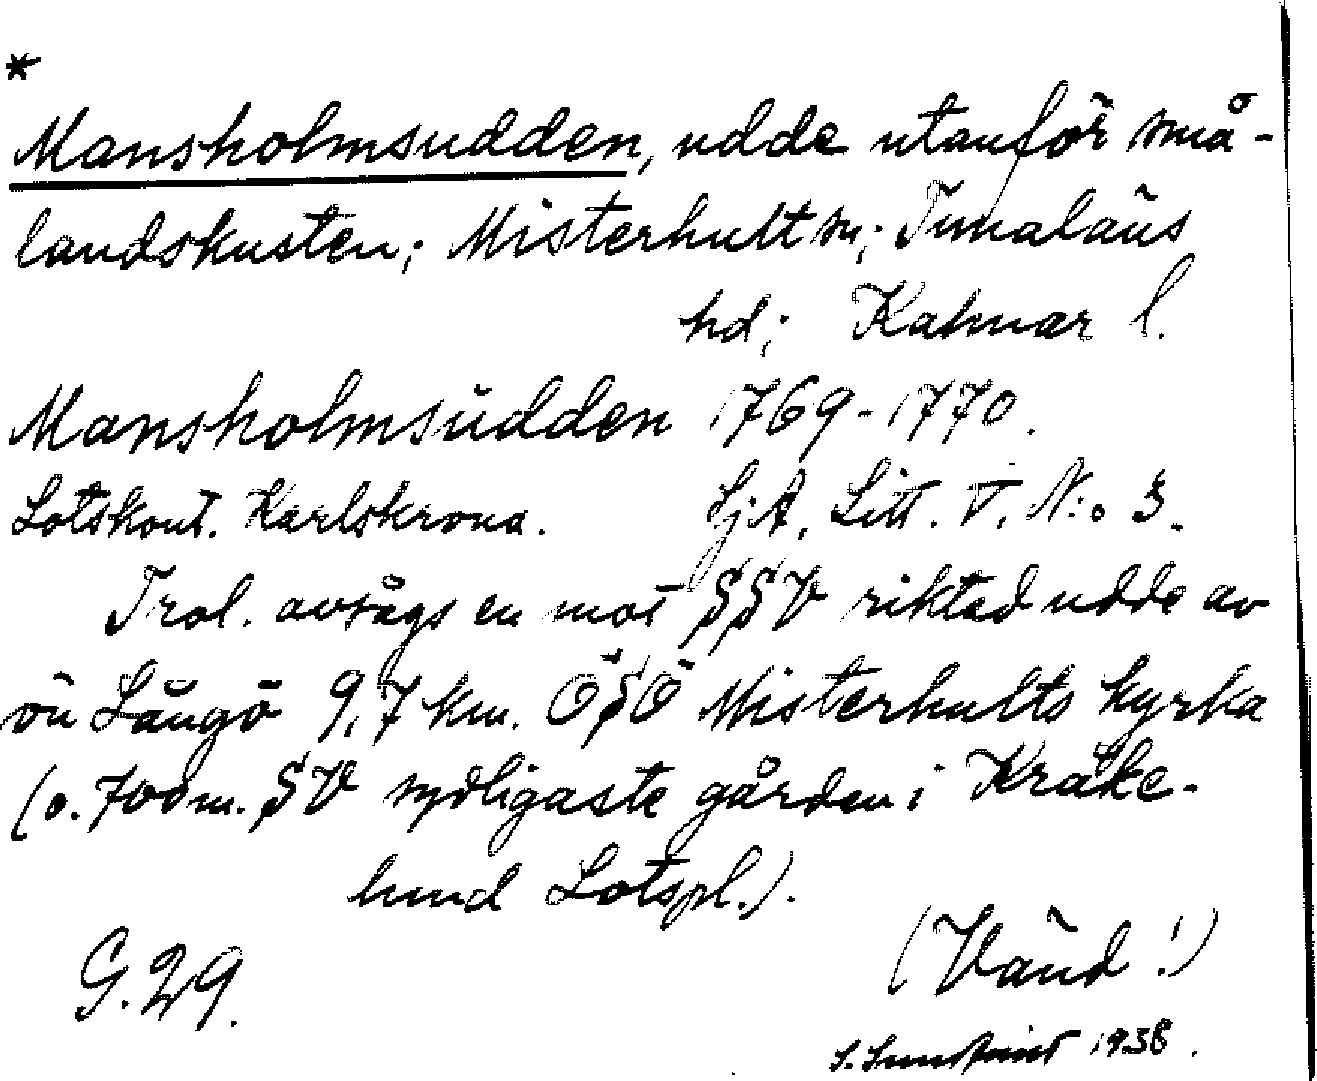 *
Mansholmsudden, udde utanför små-
landskusten; Misterhult sn; Tunaläns
hd; Kalmar l.
Mansholmsudden 1769-1770.
Lotskont. Karlskrona. SjA. Litt. V. N:o 3.
Trol. avsågs en mot SSV riktad udde av
ön Långö 9,7 km. ÖSÖ Misterhults kyrka
(o. 700 m. SV sydligaste gården i Kråke-
lund Lotspl.).
(Vänd!)
G. 29.
1938.